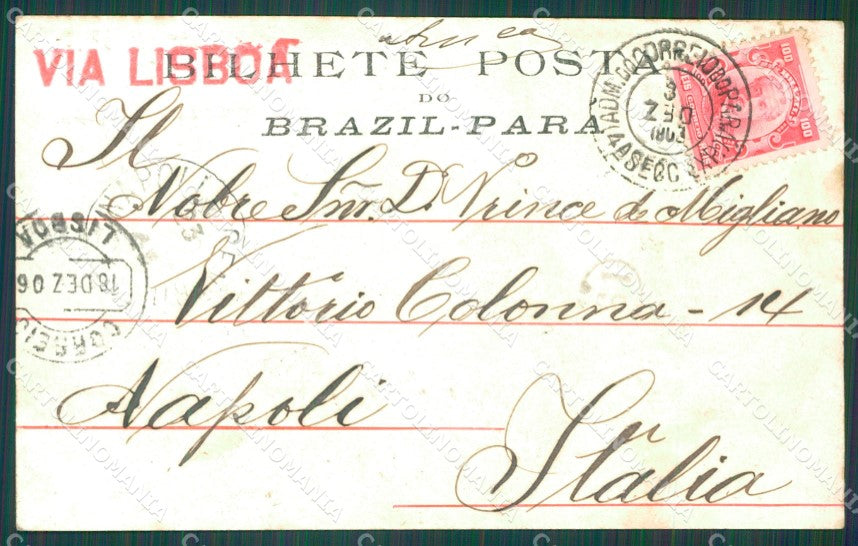 VIA LISBOA
BILHETE POSTAL
DO
BRAZIL-PARÁ
100 100
ADM. DO CORREIO DO PARÁ
3
DEZ
4ª SECÇ
Il
Nobre Snr. D. Prince de Migliano
Vittorio Colonna - 14
Napoli
Italia
LISBOA
18 DEZ 06
CORREIO
CARTOLINOMANIA